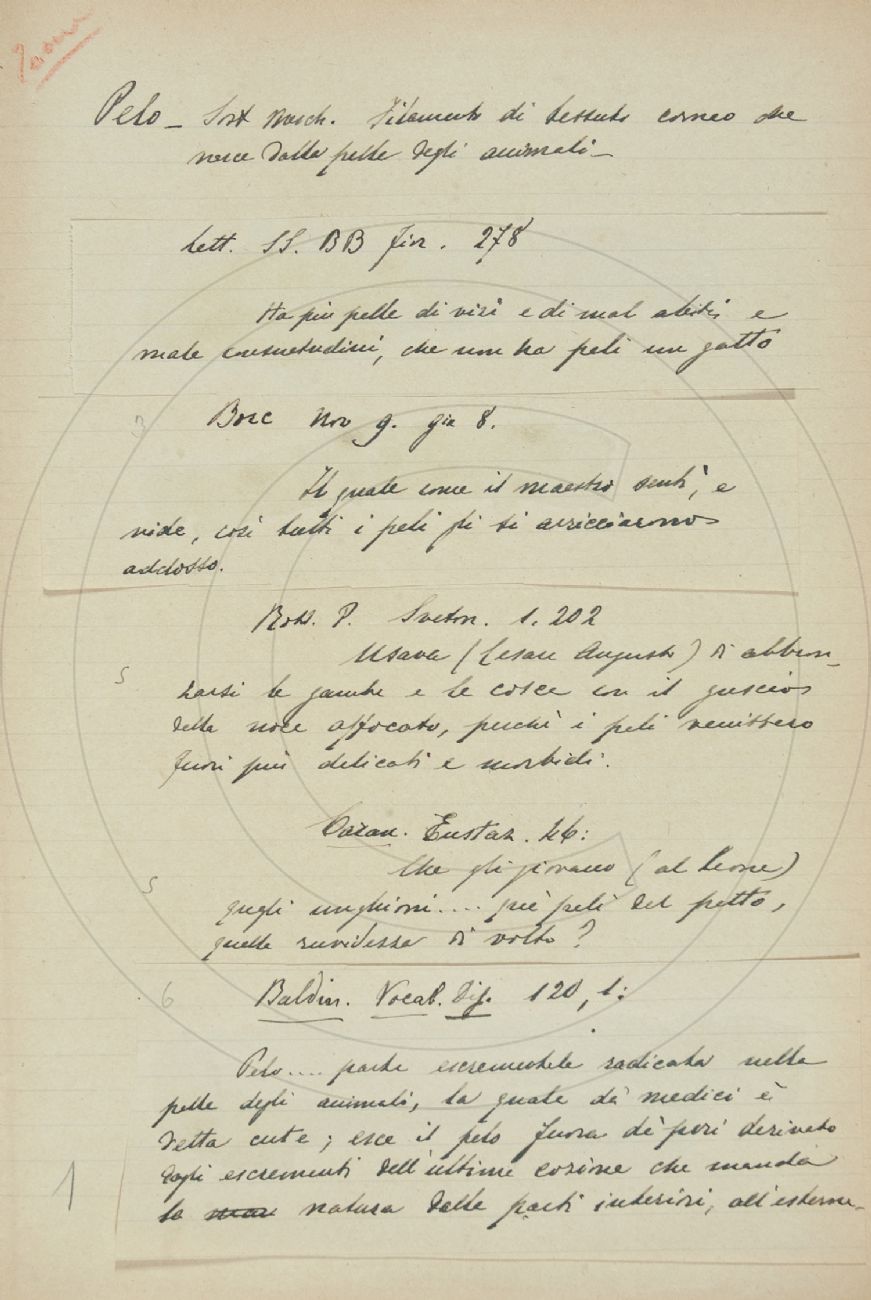 Pelo — Sost. Masch. Filamento di tessuto corneo che
nasce dalla pelle degli animali —
Lett. SS. BB Fior. 278
Ha più pelle di vizi e di mal abiti e
male consuetudini, che non ha peli un gatto
3
Bocc Nov 9. gio 8.
Il quale come il maestro sentì, e
vide, così tutti i peli gli si arricciarono
addosso.
P. Sveton. 1. 202
5
Usava (Cesare Augusto) di abbron-
zarsi le gambe e le cosce con il guscio
della noce affocato, perchè i peli venissero
fuori più delicati e morbidi.
Eustaz. 46:
Che gli giovano (al Leone)
5
quegli unghioni.... que' peli del petto,
quella ruvidezza di volto?
6
Baldin. Vocab. Dis. 120, 1:
Pelo.... parte escrementale radicata nella
pelle degli animali, la quale da' medici è
detta cute; esce il pelo fuora de' pori derivato
dagli escrementi dell'ultime cozione che manda
1
la natura dalle parti interiori, all'esterne.